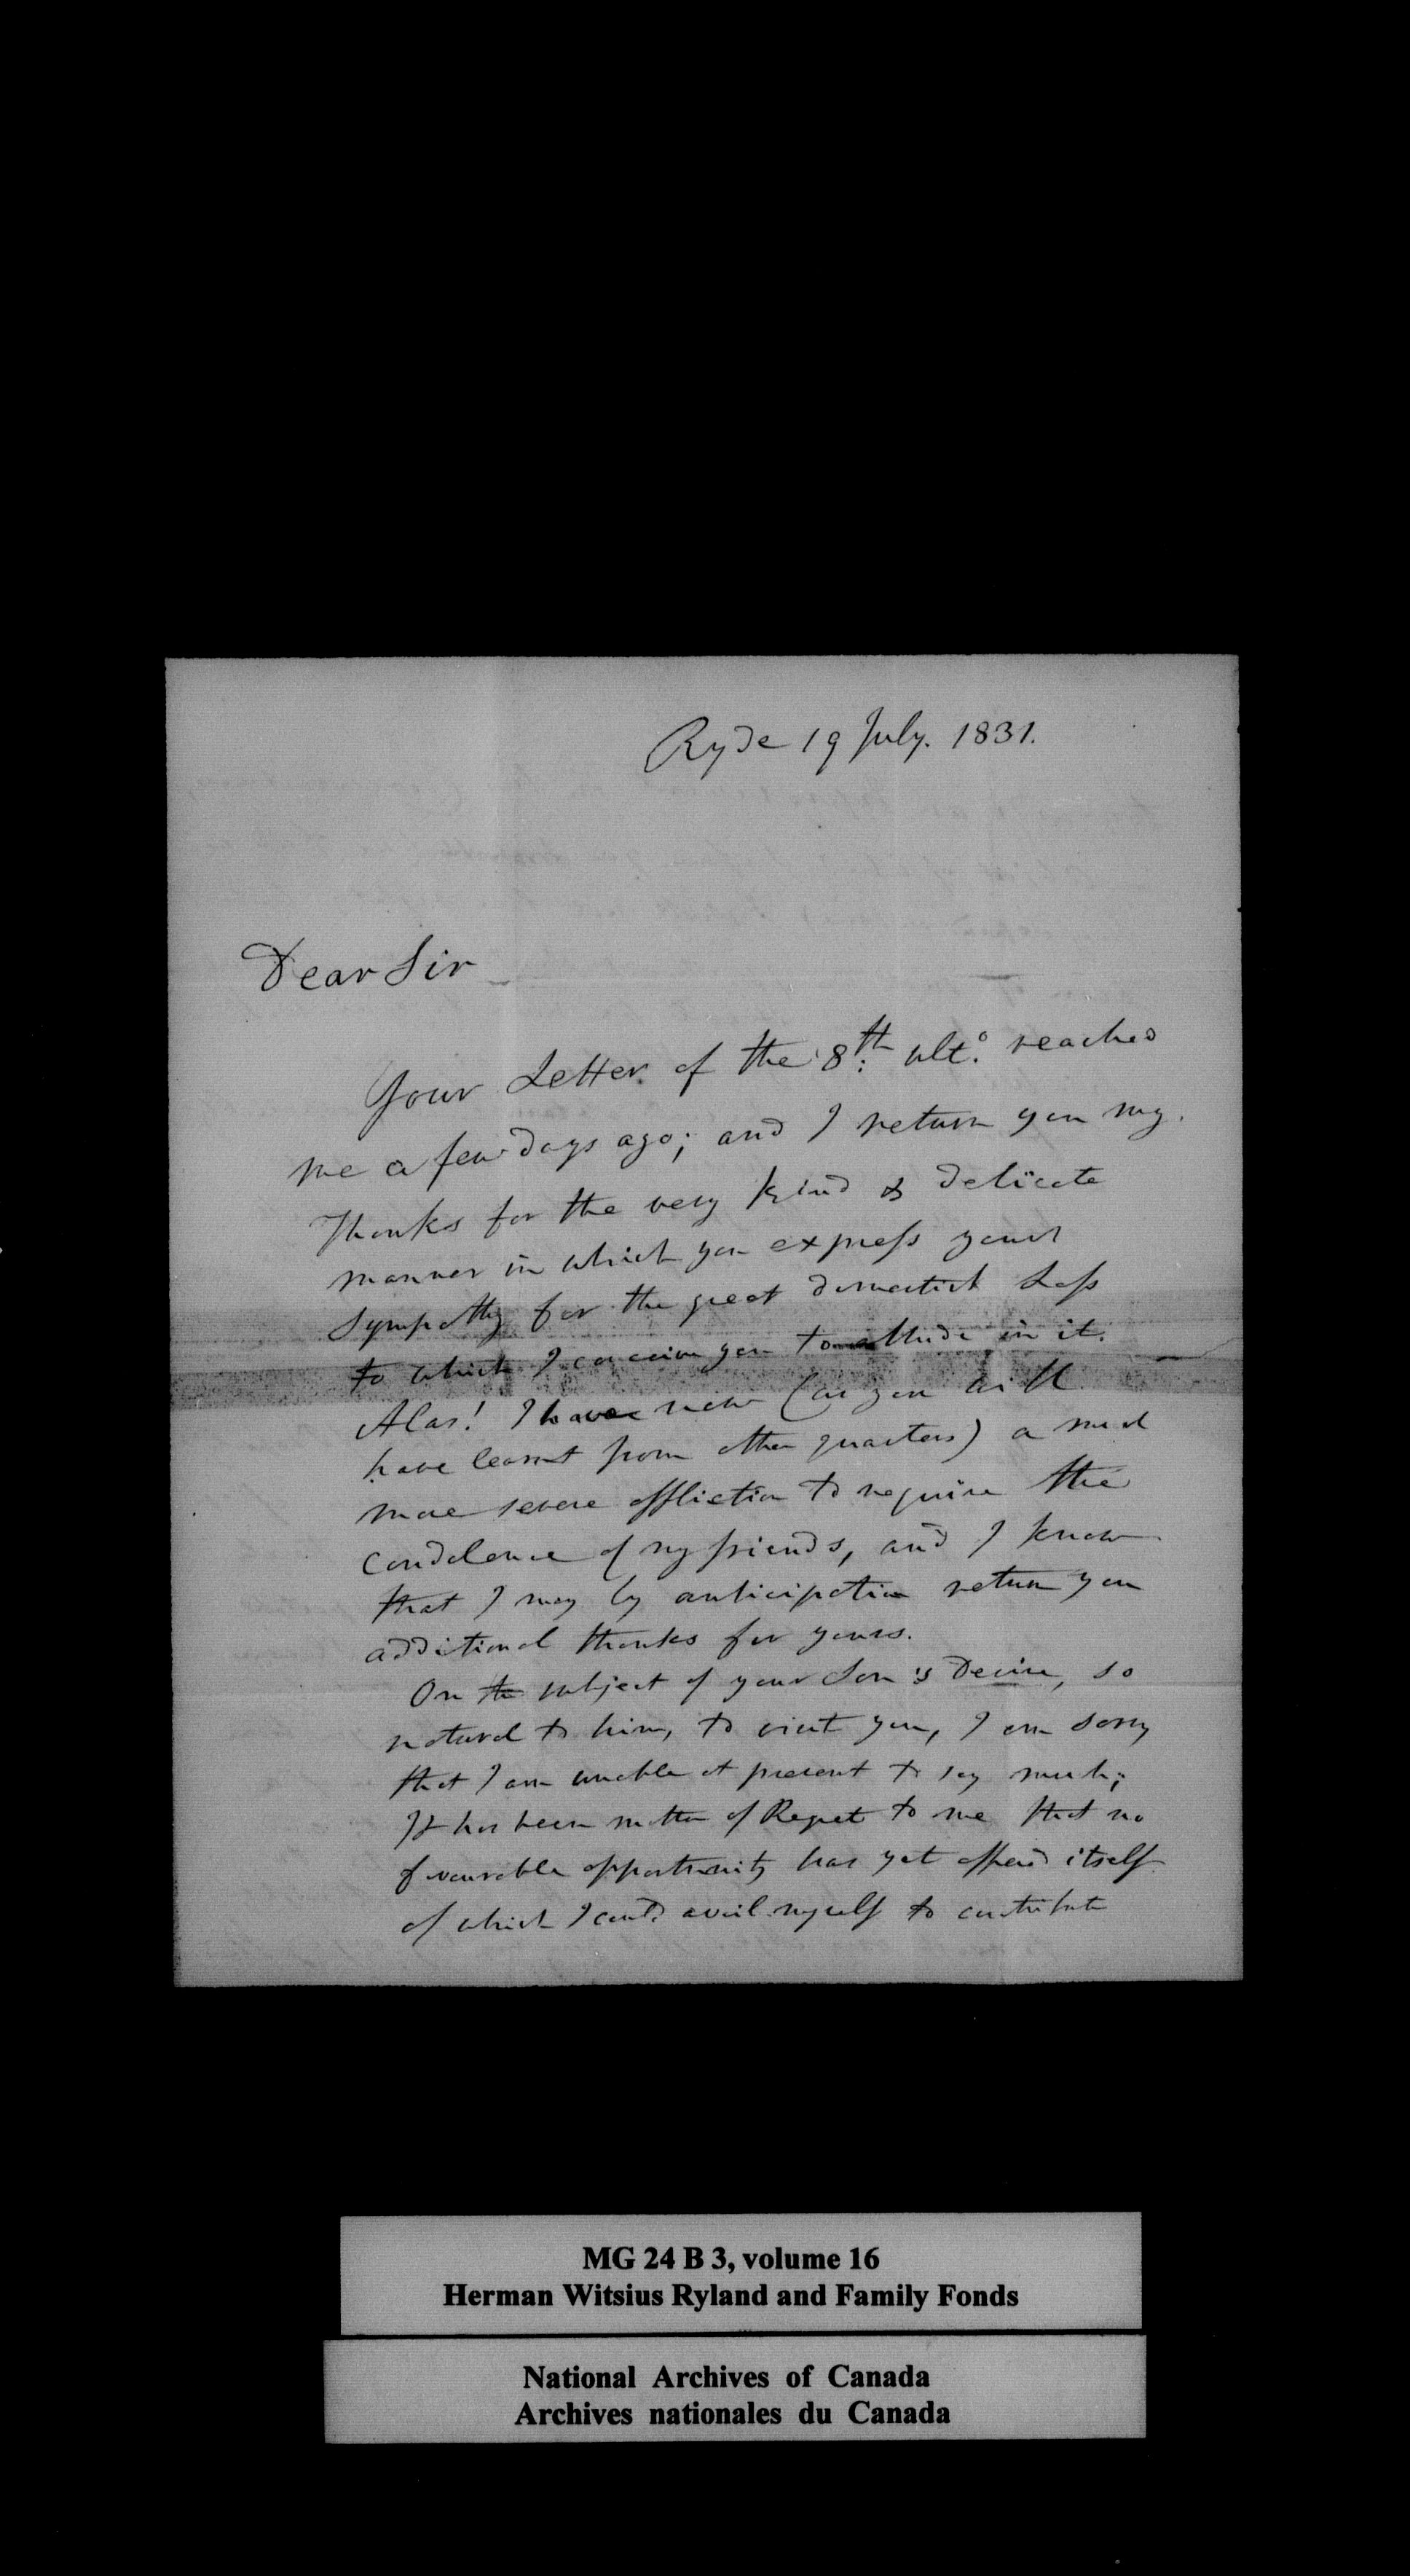 Ryde 19 July. 1831.
Dear Sir
Your Letter of the 8th ulto. reached
me a few days ago; and I return you my
Thanks for the very kind & delicate
manner in which you express your
Sympathy for the great domestick Loss
to which I conceive you to allude in it.
Alas! I have now (as you will
have learnt from other quarters) a much
more severe affliction to require the
condolence of my friends, and I know
that I may by anticipation return you
additional thanks for yours.
On the subject of your Son's Desire, so
natural to him, to visit you, I am sorry
that I am unable at present to say much;
It has been matter of Regret to me that no
favourable opportunity has yet offered itself
of which I could avail myself to contribute
MG 24 B 3, volume 16
Herman Witsius Ryland and Family Fonds
National Archives of Canada
Archives nationales du Canada